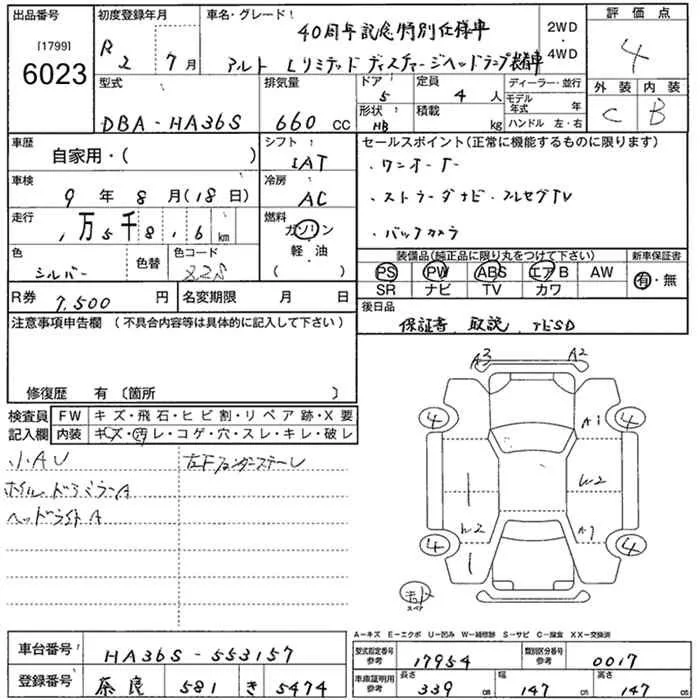 出品番号
[1799]
6023
初度登録年月
R 2 7月
車名・グレード
40周年記念特別仕様車
アルト Lリミテッド ディスチャージヘッドランプ装着車
2WD
・
4WD
評価点
4
外装 内装
C B
型式
DBA-HA36S
排気量
660 CC
ドア
5
定員
4 人
形状
HB
積載
kg
ディーラー・並行
モデル年式 年
ハンドル 左・右
車歴
自家用・( )
シフト
IAT
車検
9 年 8 月(18日)
冷房
AC
走行
1万5千8.6 km
燃料
ガソリン
軽油
( )
色
シルバー
色替
色コード
Z2S
R券 7,500 円
名変期限 月 日
セールスポイント(正常に機能するものに限ります)
・ワンオーナー
・ストラーダナビ・フルセグTV
・バックカメラ
装備品(純正品に限り丸をつけて下さい)
PS PW ABS エアB AW
SR ナビ TV カワ
新車保証書
有・無
後日品
保証書 取説
注意事項申告欄(不具合内容等は具体的に記入して下さい)
修復歴 有〔箇所 〕
検査員記入欄
FW キズ・飛石・ヒビ割・リペア跡・X要
内装 キズ・汚レ・コゲ・穴・スレ・キレ・破レ
小AU
ホイル、ドアミラーA
ヘッドライトA
左Fフェンダーステーレ
A3 A2
4 4
A1
W2
W2 A1
4 4
スペア
A−キズ E−エクボ U−凹み W−補修跡 S−サビ C−腐食 XX−交換済
車台番号 HA36S-553157
登録番号 奈良 581 き 5474
型式指定番号
参考
17954
類別区分番号
参考
0017
車庫証明用
参考
長さ 339 cm
幅 147 cm
高さ 147 cm